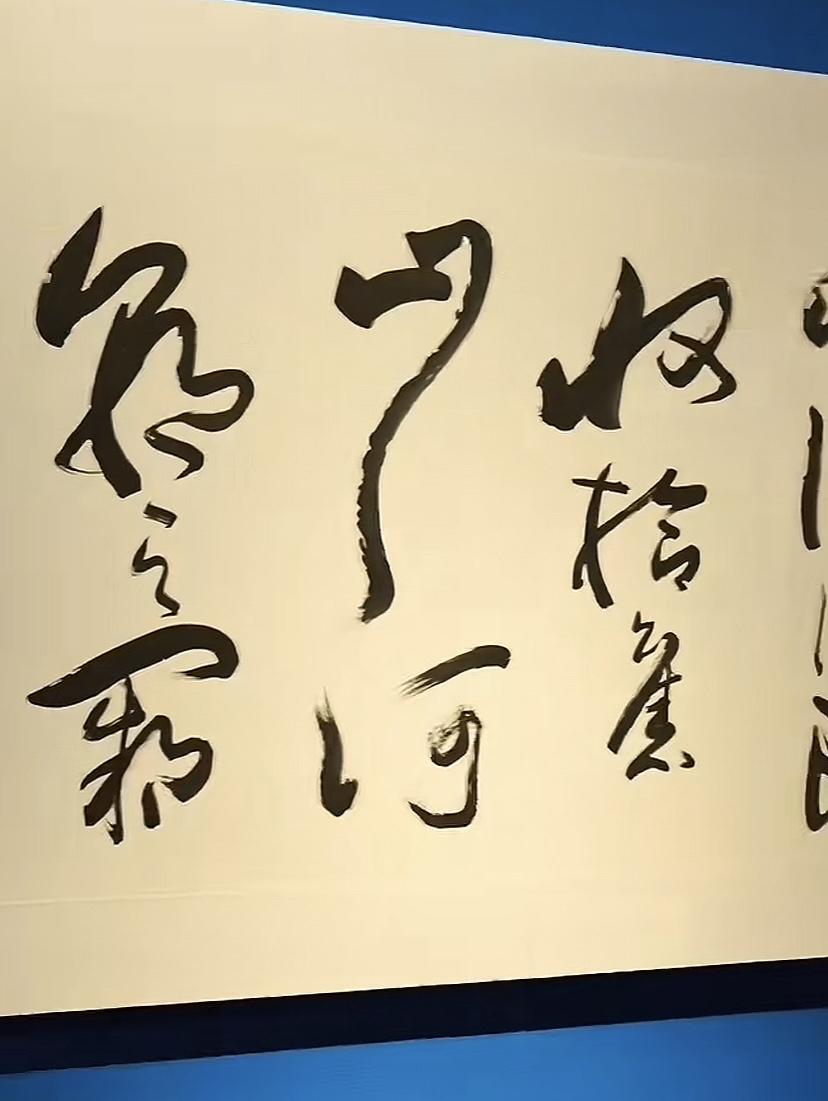 收拾舊
山河
朝天闕